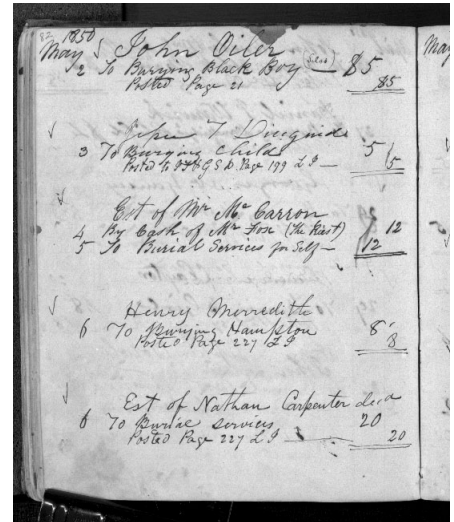 82 1850
May John Oiler
2 To Burying Black Boy — $5
Posted Page 21 $5
3 To Burying Child 5
Posted to Page 199 L I — 5
Est of Mr Mc Carron
4 By Cash of Mr Fox (The Kast) 12
5 To Burial Services for Self — 12
Henry Merredith
6 To Burying Hampton 8
Posted Page 227 L I 8
Est of Nathan Carpenter decd
6 To Burial Services 20
Posted Page 227 L I — 20
May